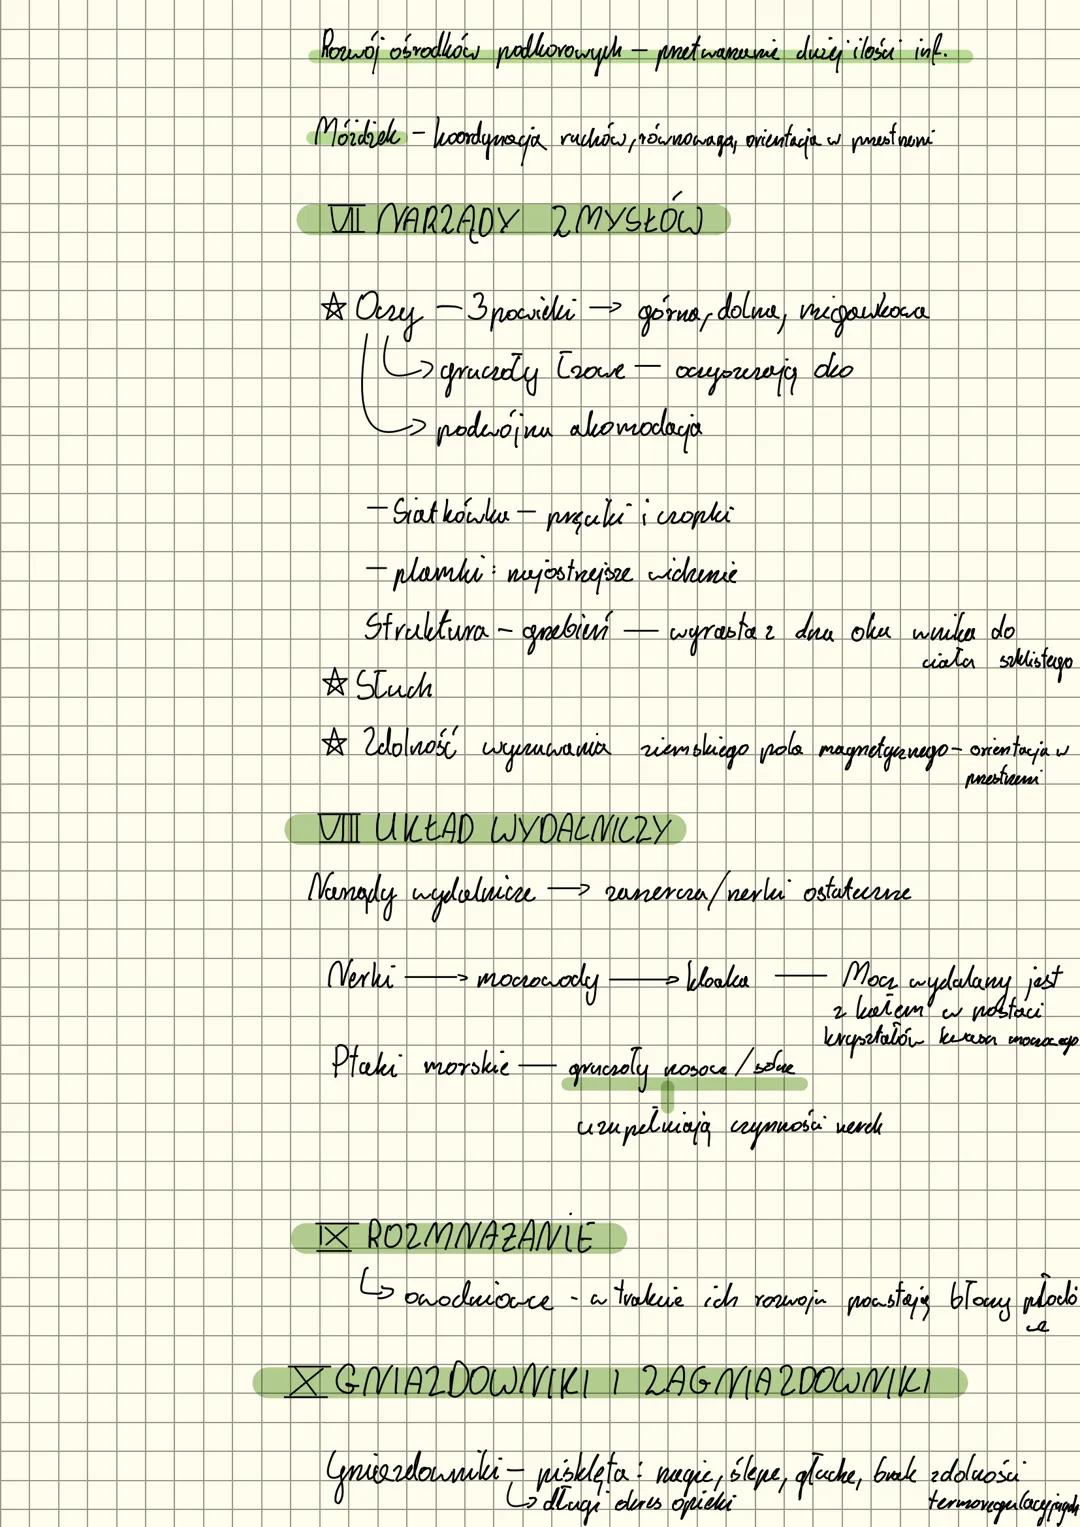 Rozwój ośrodków podkorowych – przetwarzanie dużej ilości inf.
Móżdżek – koordynacja ruchów, równowaga, orientacja w przestrzeni
VII NARZĄDY ZMYSŁÓW
☆ Oczy – 3 powieki → górna, dolna, migawkowa
↳ gruczoły łzowe – oczyszczają oko
↳ podwójna akomodacja
– Siatkówka – pręciki i czopki
– plamki: najostrzejsze widzenie
Struktura – grzebień – wyrasta z dna oka wnika do
ciała szklistego
☆ Słuch
☆ Zdolność wyczuwania ziemskiego pola magnetycznego – orientacja w
przestrzeni
VIII UKŁAD WYDALNICZY
Narządy wydalnicze → zanercza/nerki ostateczne
Nerki → moczowody → kloaka – Mocz wydalany jest
z kałem w postaci
kryształów kwasu moczowego
Ptaki morskie – gruczoły nosowe / solne
uzupełniają czynności nerek
IX ROZMNAŻANIE
↳ owodniowce - w trakcie ich rozwoju powstają błony płodo
we
X GNIAZDOWNIKI I ZAGNIAZDOWNIKI
Gniazdowniki – pisklęta: nagie, ślepe, głuche, brak zdolności
↳ długi okres opieki termoregulacyjnych